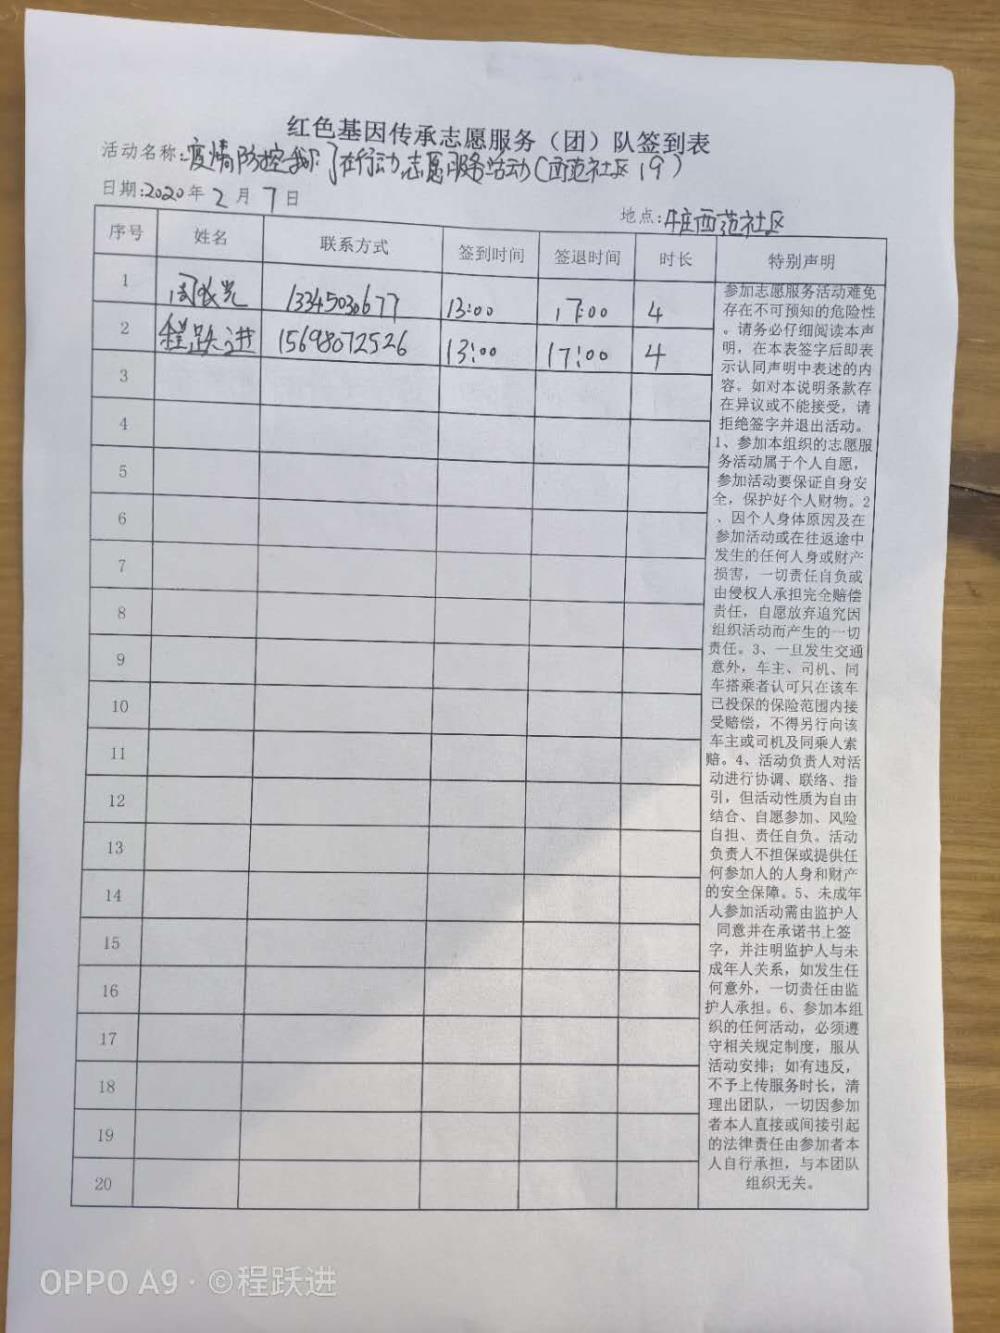 红色基因传承志愿服务（团）队签到表
活动名称:疫情防控我们在行动志愿服务活动(西范社区19)
日期:2020年2月7日
地点:牛庄西范社区
序号 姓名 联系方式 签到时间 签退时间 时长 特别声明
1 周 13345030677 13:00 17:00 4
2 程跃进 15698072526 13:00 17:00 4
3
4
5
6
7
8
9
10
11
12
13
14
15
16
17
18
19
20
参加志愿服务活动难免
存在不可预知的危险性
。请务必仔细阅读本声
明，在本表签字后即表
示认同声明中表述的内
容。如对本说明条款存
在异议或不能接受，请
拒绝签字并退出活动。
1、参加本组织的志愿服
务活动属于个人自愿，
参加活动要保证自身安
全，保护好个人财物。2
、因个人身体原因及在
参加活动或在往返途中
发生的任何人身或财产
损害，一切责任自负或
由侵权人承担完全赔偿
责任，自愿放弃追究因
组织活动而产生的一切
责任。3、一旦发生交通
意外，车主、司机、同
车搭乘者认可只在该车
已投保的保险范围内接
受赔偿，不得另行向该
车主或司机及同乘人索
赔。4、活动负责人对活
动进行协调、联络、指
引，但活动性质为自由
结合、自愿参加、风险
自担、责任自负。活动
负责人不担保或提供任
何参加人的人身和财产
的安全保障。5、未成年
人参加活动需由监护人
同意并在承诺书上签
字，并注明监护人与未
成年人关系，如发生任
何意外，一切责任由监
护人承担。6、参加本组
织的任何活动，必须遵
守相关规定制度，服从
活动安排；如有违反，
不予上传服务时长，清
理出团队，一切因参加
者本人直接或间接引起
的法律责任由参加者本
人自行承担，与本团队
组织无关。
OPPO A9 · ©程跃进